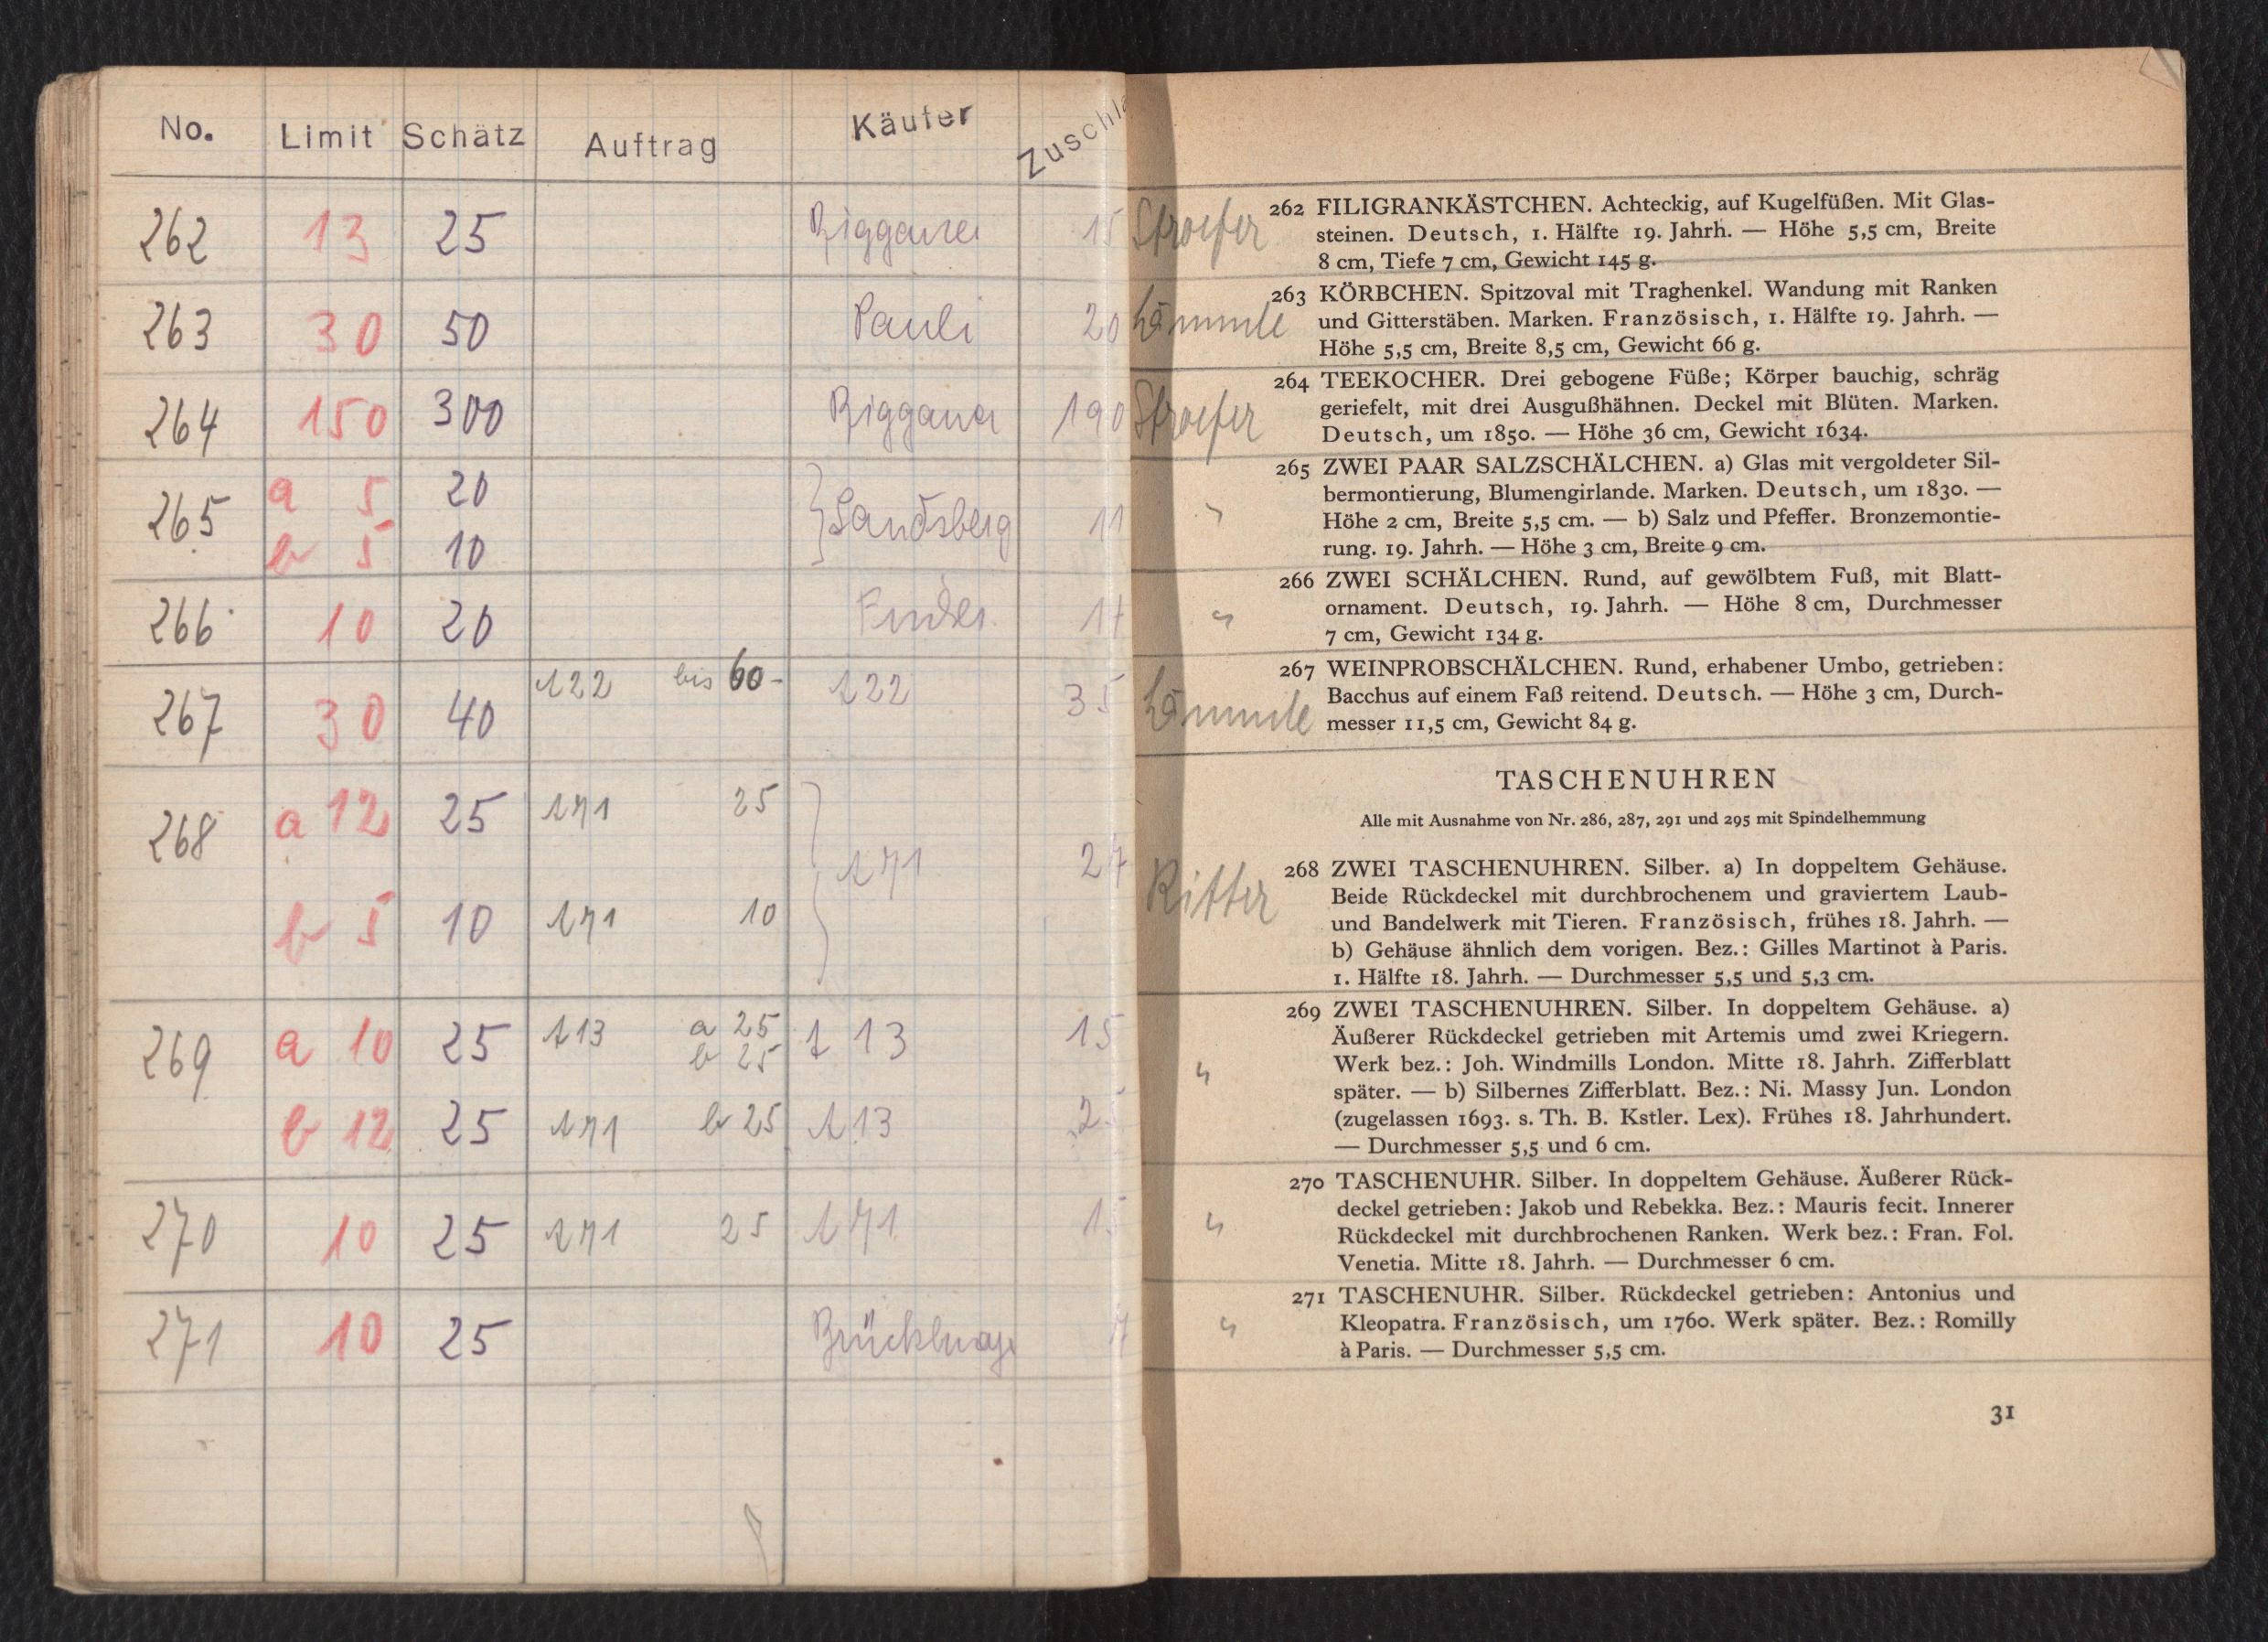 No. Limit Schätz Auftrag Käufer Zuschla
262 13 25 15
263 30 50 Pauli 20
264 150 300 190
265 a 5 20 Landsberg 11
b 5 10
266 10 20
267 30 40 122 bis 60- 122 35
268 a 12 25 171 25 171
b 5 10 171 10
269 a 10 25 113 a 25 113 15
b 25
b 12 25 171 b 25 113
270 10 25 171 25 171
271 10 25
Stroefer
262 FILIGRANKÄSTCHEN. Achteckig, auf Kugelfüßen. Mit Glas-
steinen. Deutsch, 1. Hälfte 19. Jahrh. — Höhe 5,5 cm, Breite
8 cm, Tiefe 7 cm, Gewicht 145 g.
Lämmle
263 KÖRBCHEN. Spitzoval mit Traghenkel. Wandung mit Ranken
und Gitterstäben. Marken. Französisch, 1. Hälfte 19. Jahrh. —
Höhe 5,5 cm, Breite 8,5 cm, Gewicht 66 g.
Stroefer
264 TEEKOCHER. Drei gebogene Füße; Körper bauchig, schräg
geriefelt, mit drei Ausgußhähnen. Deckel mit Blüten. Marken.
Deutsch, um 1850. — Höhe 36 cm, Gewicht 1634.
265 ZWEI PAAR SALZSCHÄLCHEN. a) Glas mit vergoldeter Sil-
bermontierung, Blumengirlande. Marken. Deutsch, um 1830. —
Höhe 2 cm, Breite 5,5 cm. — b) Salz und Pfeffer. Bronzemontie-
rung. 19. Jahrh. — Höhe 3 cm, Breite 9 cm.
266 ZWEI SCHÄLCHEN. Rund, auf gewölbtem Fuß, mit Blatt-
ornament. Deutsch, 19. Jahrh. — Höhe 8 cm, Durchmesser
7 cm, Gewicht 134 g.
Lämmle
267 WEINPROBSCHÄLCHEN. Rund, erhabener Umbo, getrieben:
Bacchus auf einem Faß reitend. Deutsch. — Höhe 3 cm, Durch-
messer 11,5 cm, Gewicht 84 g.
TASCHENUHREN
Alle mit Ausnahme von Nr. 286, 287, 291 und 295 mit Spindelhemmung
Ritter
268 ZWEI TASCHENUHREN. Silber. a) In doppeltem Gehäuse.
Beide Rückdeckel mit durchbrochenem und graviertem Laub-
und Bandelwerk mit Tieren. Französisch, frühes 18. Jahrh. —
b) Gehäuse ähnlich dem vorigen. Bez.: Gilles Martinot à Paris.
1. Hälfte 18. Jahrh. — Durchmesser 5,5 und 5,3 cm.
269 ZWEI TASCHENUHREN. Silber. In doppeltem Gehäuse. a)
Äußerer Rückdeckel getrieben mit Artemis umd zwei Kriegern.
Werk bez.: Joh. Windmills London. Mitte 18. Jahrh. Zifferblatt
später. — b) Silbernes Zifferblatt. Bez.: Ni. Massy Jun. London
(zugelassen 1693. s. Th. B. Kstler. Lex). Frühes 18. Jahrhundert.
— Durchmesser 5,5 und 6 cm.
270 TASCHENUHR. Silber. In doppeltem Gehäuse. Äußerer Rück-
deckel getrieben: Jakob und Rebekka. Bez.: Mauris fecit. Innerer
Rückdeckel mit durchbrochenen Ranken. Werk bez.: Fran. Fol.
Venetia. Mitte 18. Jahrh. — Durchmesser 6 cm.
271 TASCHENUHR. Silber. Rückdeckel getrieben: Antonius und
Kleopatra. Französisch, um 1760. Werk später. Bez.: Romilly
à Paris. — Durchmesser 5,5 cm.
31